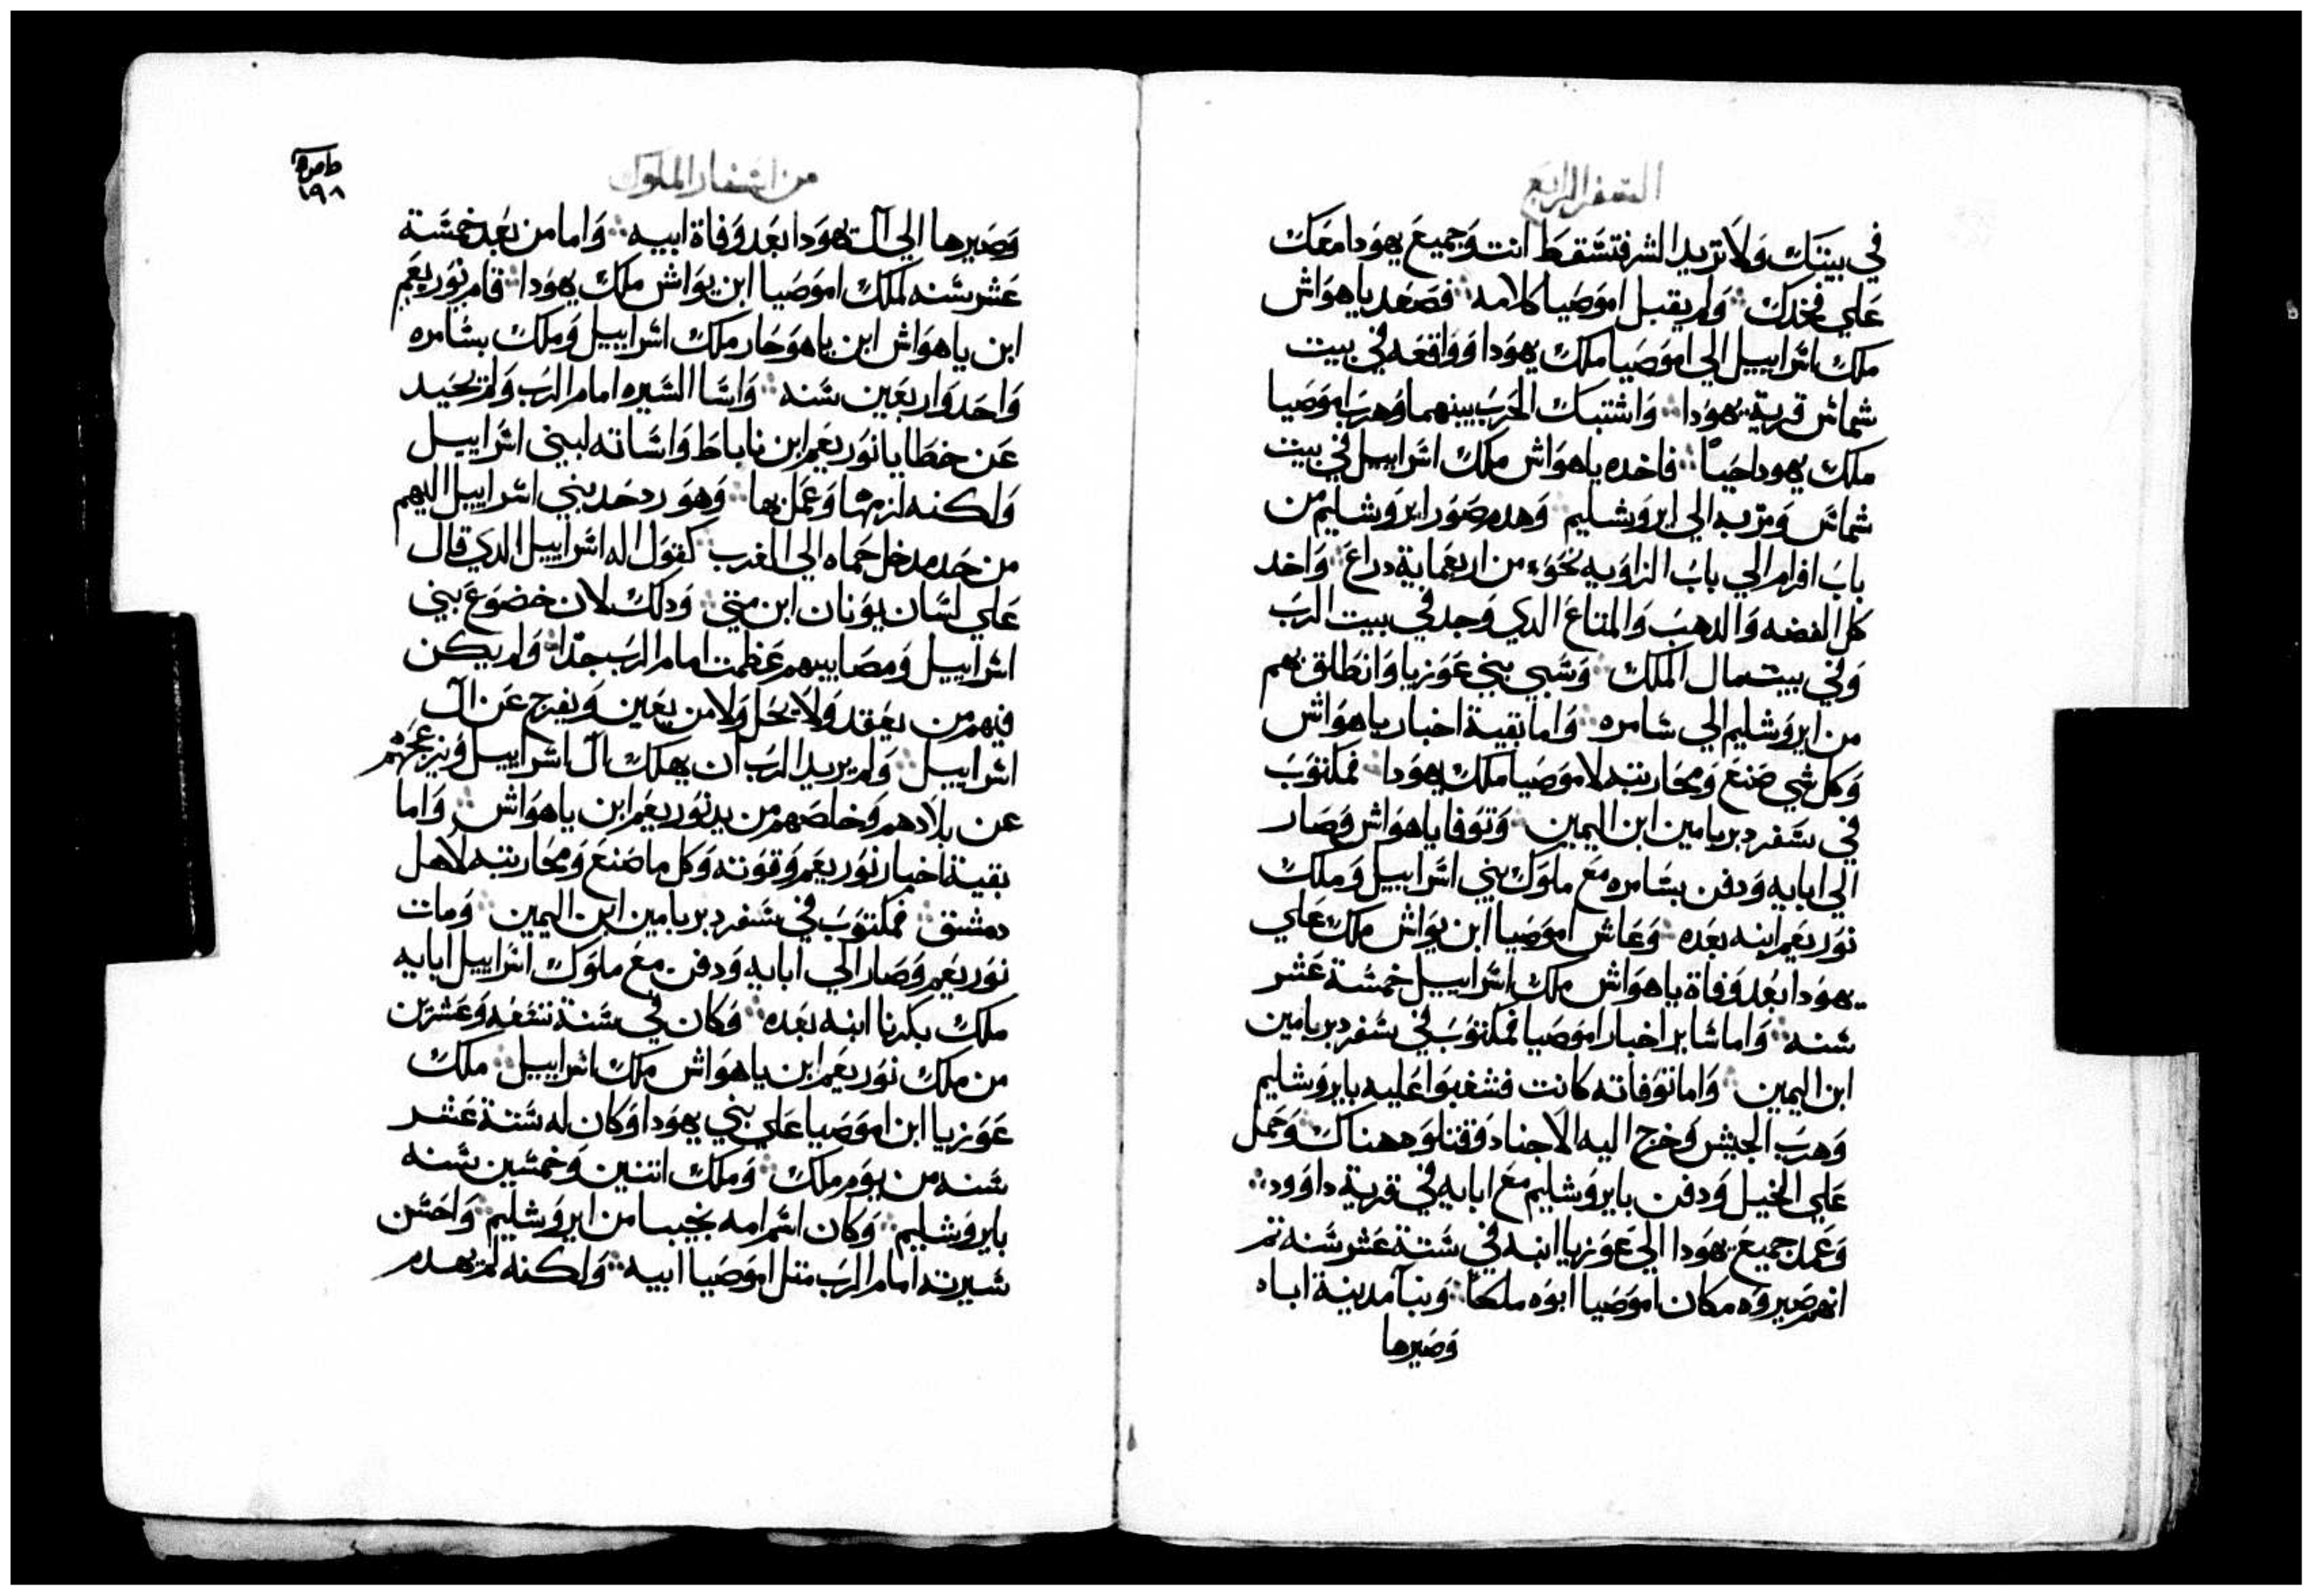 السفر الرابع
في بيتك ولا تريد الشر فتسقط انت وجميع يهودا معك
علي فخدك ولم يقبل اموصيا كلامه فصعد ياهواش
ملك اسراييل الي اموصيا ملك يهودا وواقعه في بيت
شماس قرية يهودا واشتبك الحرب بينهما وهرب اموصيا
ملك يهودا حيا فاخده ياهواش ملك اسراييل في بيت
شماس ومر به الي ايروشليم وهدم صور ايروشليم من
باب افرام الي باب الزاويه نحو من اربعماية دراع واخد
كل الفضه والدهب والمتاع الدي وجد في بيت الرب
وفي بيت مال الملك وسبي بني عوزيا وانطلق بهم
من ايروشليم الي سامره واما بقية اخبار ياهواش
وكل شي صنع ومحاربته لاموصيا ملك يهودا فمكتوب
في سفر دبريامين ابن اليمين وتوفا ياهواش وصار
الي ابايه ودفن بسامره مع ملوك بني اسراييل وملك
نوربعم ابنه بعده وعاش اموصيا ابن يواش ملك علي
يهودا بعد وفاة ياهواش ملك اسراييل خمسة عشر
سنه واما ساير اخبار اموصيا فمكتوب في سفر دبريامين
ابن اليمين واما توفاته كانت فشغبوا عليه بايروشليم
وهرب الجيش وخرج اليه الاجناد وقتلوه هناك وحمل
علي الخيل ودفن بايروشليم مع ابايه في قرية داوود
وعمد جميع يهودا الي عوزيا ابنه في ستة عشر سنه تم
انهم صيروه مكان اموصيا ابوه ملكا وبنا مدينة اباه
وصيرها
من اسفار الملوك
١٩٨
وصيرها الي آل يهودا بعد وفاة ابيه واما من بعد خمسة
عشر سنه لملك اموصيا ابن يواش ملك يهودا قام نوربعم
ابن ياهواش ابن ياهوحار ملك اسراييل وملك بسامره
واحد واربعين سنه واسا السيره امام الرب ولم يحيد
عن خطايا نوربعم ابن ناباط واساته لبني اسراييل
ولكنه لزمها وعمل بها وهو رد حد بني اسراييل اليهم
من حد مدخل حماه الي المغرب كقول اله اسراييل الدي قال
علي لسان يونان ابن متي ودلك لان خضوع بني
اسراييل ومصايبهم عظمت امام الرب جدا ولم يكن
فيهم من يعقد ولا يحل ولا من يعين ويفرج عن آل
اسراييل ولم يريد الرب ان يهلك آل اسراييل ويزعجهم
عن بلادهم وخلصهم من يد نوربعم ابن ياهواش واما
بقية اخبار نوربعم وقوته وكل ما صنع ومحاربته لاهل
دمشق فمكتوب في سفر دبريامين ابن اليمين ومات
نوربعم وصار الي ابايه ودفن مع ملوك اسراييل ابايه
ملك بكرنا ابنه بعده وكان في سنة تسعه وعشرين
من ملك نوربعم ابن ياهواش ملك اسراييل ملك
عوزيا ابن اموصيا علي بني يهودا وكان له ستة عشر
سنه من يوم ملك وملك اتنين وخمسين سنه
بايروشليم وكان اسم امه نجيبا من ايروشليم واحسن
سيرته امام الرب متل اموصيا ابيه ولكنه لم يهدم